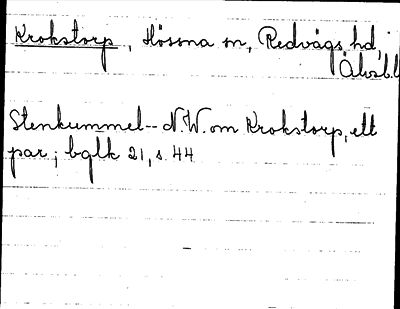 Krokstorp., Hössna sn, Redvägs hd,
Älvsb.l
Stenkummel -- N.W. om Krokstorp, ett
par; bglk 21, s. 44